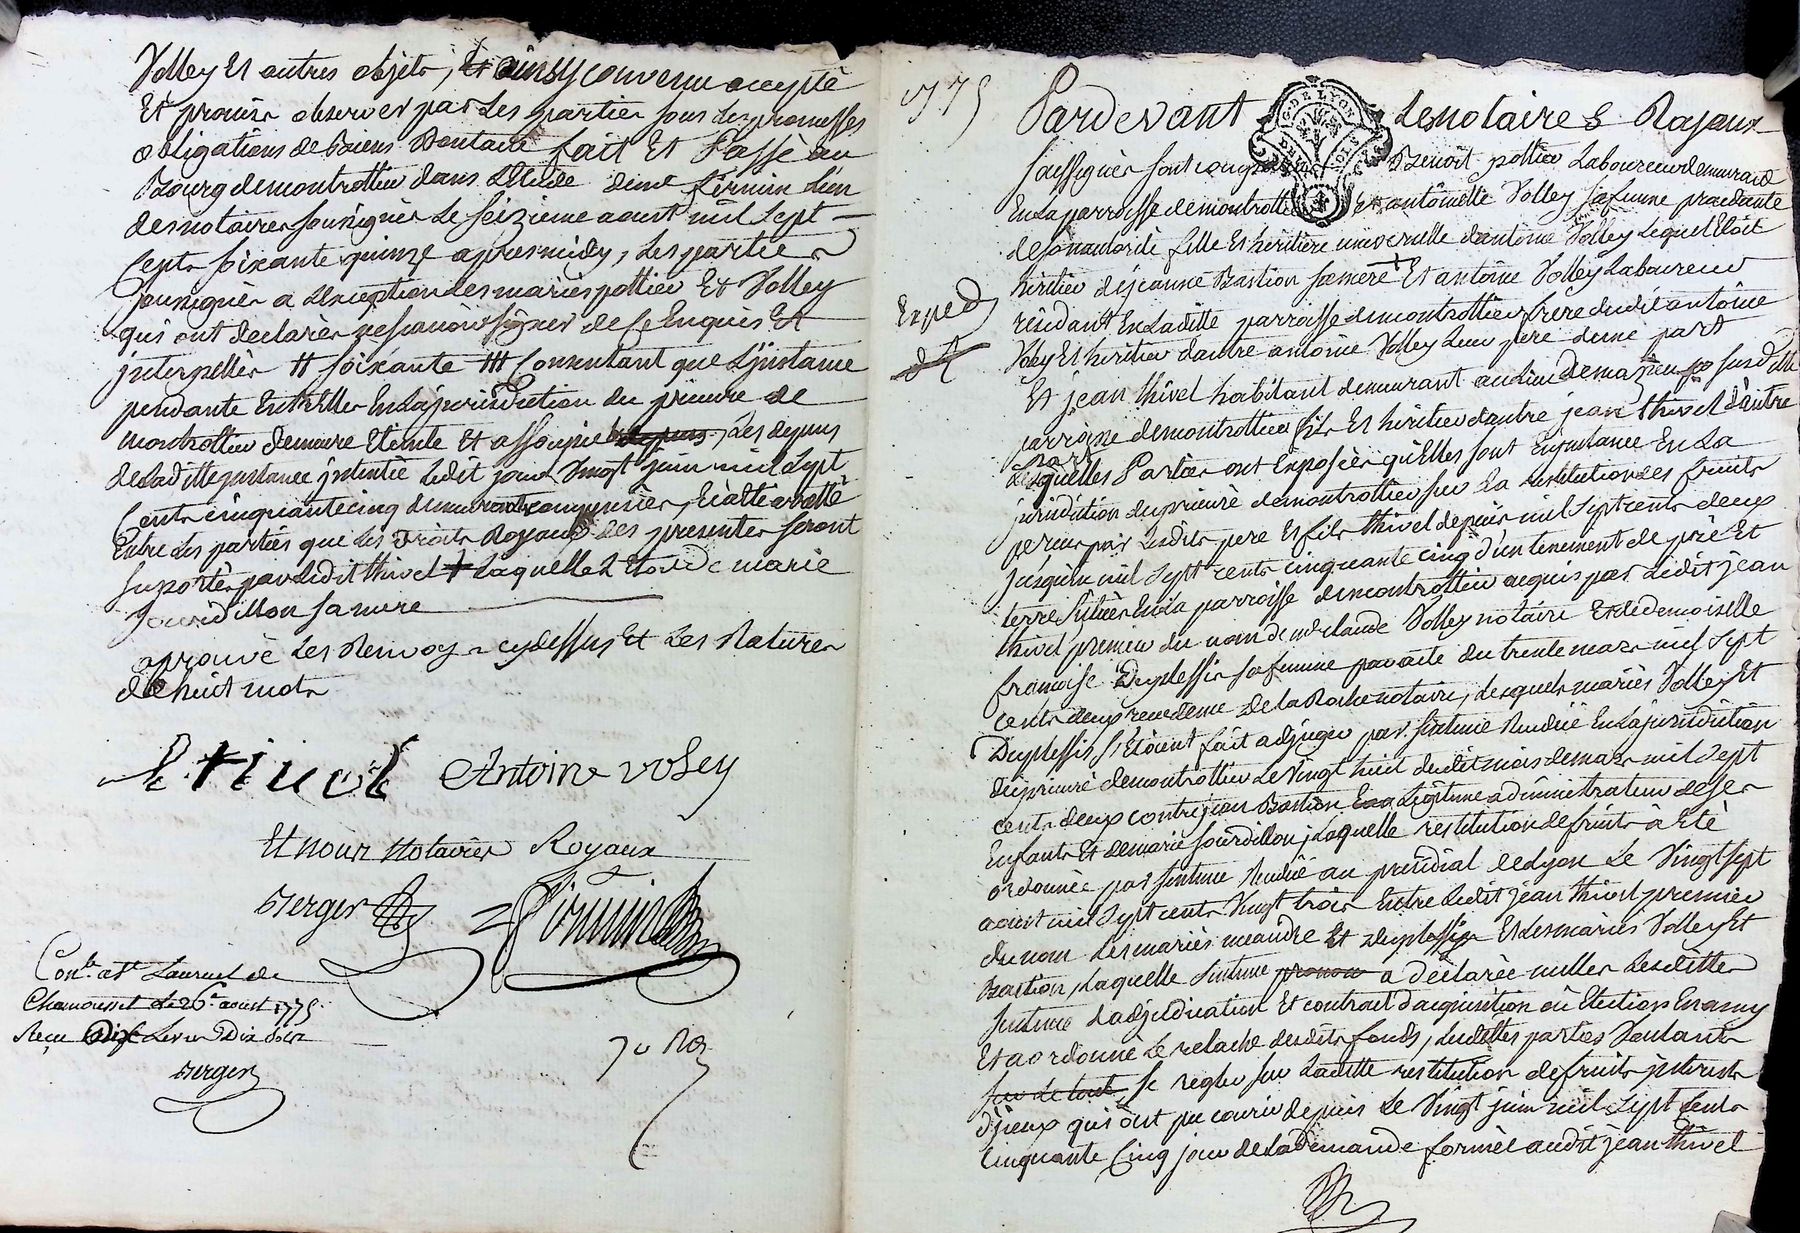 Volley Et autres objets, Et ainsy convenu accepté
Et promis observer par Les parties sous les promesses
obligations de Biens Dontacte fait Et Passé au
Bourg de montrottier dans L'Etude dime fermin L'un
des notaires soussignés Le seizieme aoust mil sept
Cents soixante quinze apres midy, Les parties
soussignés a L'exception des mariés pottier Et Volley
qui ont declarés ne scavoir signer de Ce Enquis Et
interpellés # soixante ### Consentant que L'jnstance
pendante Entr'Elles En La jurisdiction du prieuré de
montrottier demeure Eteinte Et assoupie depuis, Les depens
de Laditte jnstance jntentée Ledit jour Vingt juin mil sept
Cents cinquante cinq demeurants compensés, Eté arretté
Entre Les parties que Les Droits Royaux des presentes seront
suportés par Ledit thivel + Laquelle Etoit de marie
sourdillon sa mere
aprouvé Les Renvoys cy dessus Et Les Ratures
de huit mots
thivel Antoine voley
Et nous Notaires Royaux
Berger
Con.lé à St Laurent de
Chamousset Le 26e aoust 1775
Reçu Dix Livres Dix sols
Berger
1775
Pardevant Les notaires Royaux
G. DE LYON
soussignés sont Benoit pottier Laboureur demeurant
En La parroisse de montrottier Et antoinette Volley sa femme procedante
de son autorité fille Et heritiere universelle d'antoine Volley Lequel Etoit
heritier de jeanne Bastion sa mere + Et antoine Volley Laboureur
Exped
residant En Laditte parroisse de montrottier frere dudit antoine
Voley Et heritier d'autre antoine Volley Leur pere d'une part
Et jean thivel habitant demeurant au Lieu de mazieu susditte
parroisse de montrottier fils Et heritier d'autre jean thivel d'autre
part
Lesquelles Parties ont Exposées qu'Elles sont En jnstance En La
jurisdiction du prieuré de montrottier sur La restitution des fruits
perçus par Lesdits pere Et fils thivel depuis mil sept cents deux
jusqu'en mil sept cents cinquante cinq d'un tenement de pré Et
terre situés En La parroisse de montrottier acquis par Ledit jean
thivel premier du nom de me claude Volley notaire Et de demoiselle
francoise Duplessis sa femme par acte du trente mars mil sept
cents deux reçu de me de La Roche notaire, Lesquels mariés Volley Et
Duplessis s'Etoient fait adjuger par sentence Rendüe En La jurisdiction
du prieuré de montrottier Le Vingt huit dudit mois de mars mil sept
cents deux contre jean Bastion Legitime administrateur de ses
Enfants Et de marie sourdillon, Laquelle restitution de fruits à Eté
ordonnée par sentence Rendüe au presidial de Lyon Le Vingt sept
aoust mil sept cents Vingt trois Entre Ledit jean thivel premier
du nom Les mariés meaudre Et Duplessis Et Les mariés Volley Et
Bastion, Laquelle sentence pronon a déclarée nulles Lesdittes
sentence d'adjudication Et contrait d'acquisition où Election En amy
Et a ordonné Le relache desdits fonds, Lesdittes parties Voulants
sur Le tout se regler sur Laditte restitution de fruits jnterests
d'jceux qui ont pu courir depuis Le Vingt juin mil sept Cents
Cinquante Cinq jour de La demande formée audit jean thivel